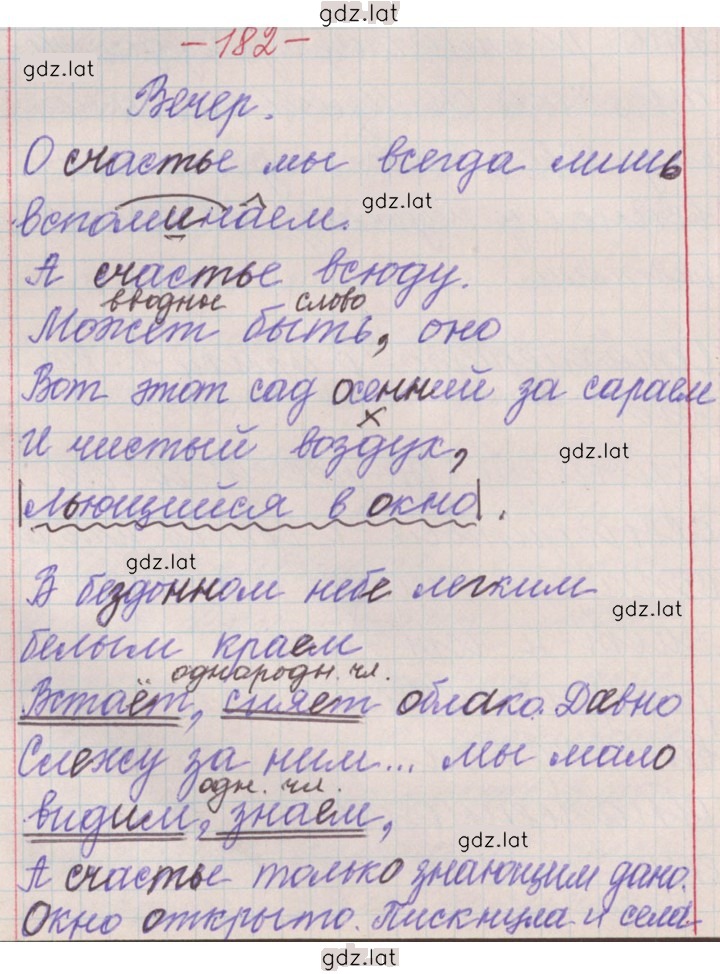 gdz.lat
- 182 -
gdz.lat
Вечер.
О счастье мы всегда лишь
gdz.lat
вспоминаем.
А счастье всюду.
вводные слово
Может быть, оно
Вот этот сад осенний за сараем
х
И чистый воздух,
gdz.lat
льющийся в окно.
gdz.lat
В бездонном небе легким
gdz.lat
белым краем
однородн. чл.
Встаёт, сияет облако. Давно
Слежу за ним... мы мало
одн. чл.
видим, знаем,
gdz.lat
А счастье только знающим дано.
Окно открыто. Пискнула и села
gdz.lat